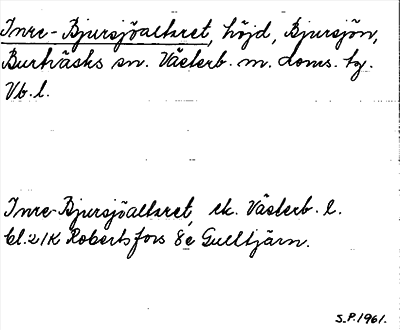 Inre-Bjursjöaltaret, höjd, Bjursjön,
Burträsks sn. Västerb. m. doms. tg.
Vb. l.
Inre-Bjursjöaltaret, ek. Västerb. l.
bl. 21K Robertsfors 8e Gulltjärn.
S.P. 1961.